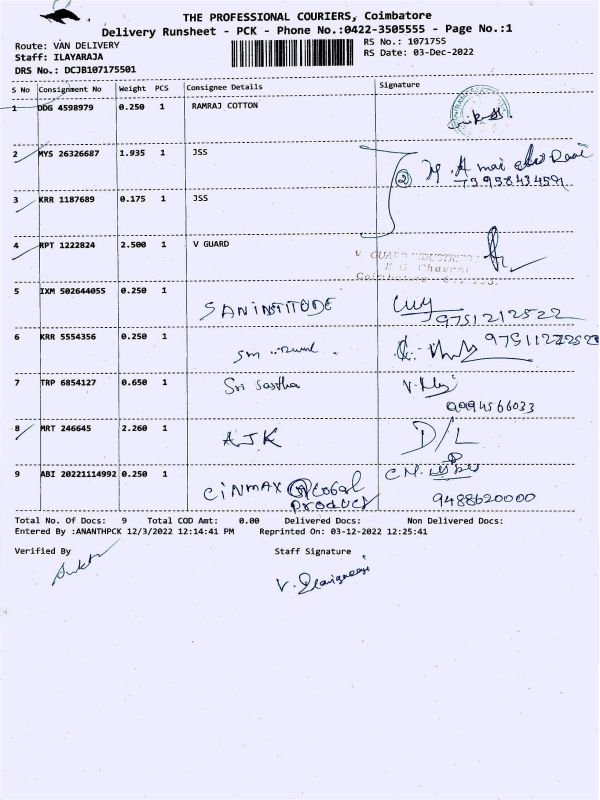 THE PROFESSIONAL COURIERS, Coimbatore
Delivery Runsheet - PCK - Phone No.:0422-3505555 - Page No.:1
Route: VAN DELIVERY RS No.: 1071755
Staff: ILAYARAJA RS Date: 03-Dec-2022
DRS No.: DCJB107175501
S No Consignment No Weight PCS Consignee Details Signature
1 DDG 4598979 0.250 1 RAMRAJ COTTON
2 MYS 26326687 1.935 1 JSS
2
3 KRR 1187689 0.175 1 JSS
4 RPT 1222824 2.500 1 V GUARD
V GUARD INDUSTRIES
5 IXM 502644055 0.250 1 SAN INSTITUDE
9751212522
6 KRR 5554356 0.250 1
7 TRP 6854127 0.650 1 Sri Sastha
9994566033
8 MRT 246645 2.260 1 AJK D/L
9 ABI 20221114992 0.250 1 CINMAX Global
Product 9488620000
Total No. Of Docs: 9 Total COD Amt: 0.00 Delivered Docs: Non Delivered Docs:
Entered By :ANANTHPCK 12/3/2022 12:14:41 PM Reprinted On: 03-12-2022 12:25:41
Verified By Staff Signature